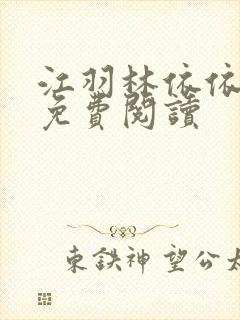 江羽林依依
免費閱讀
東鉄神望公太